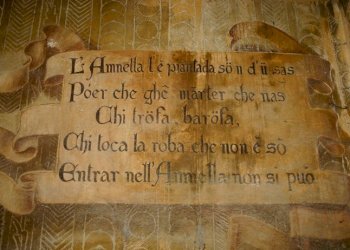 L'Amnella l'é piantada sö n d'ü sas
Póer che ghè màrter che nas
Chi tröfa, baröfa,
Chi toca la roba che non è sò
Entrar nell'Amniella non si può